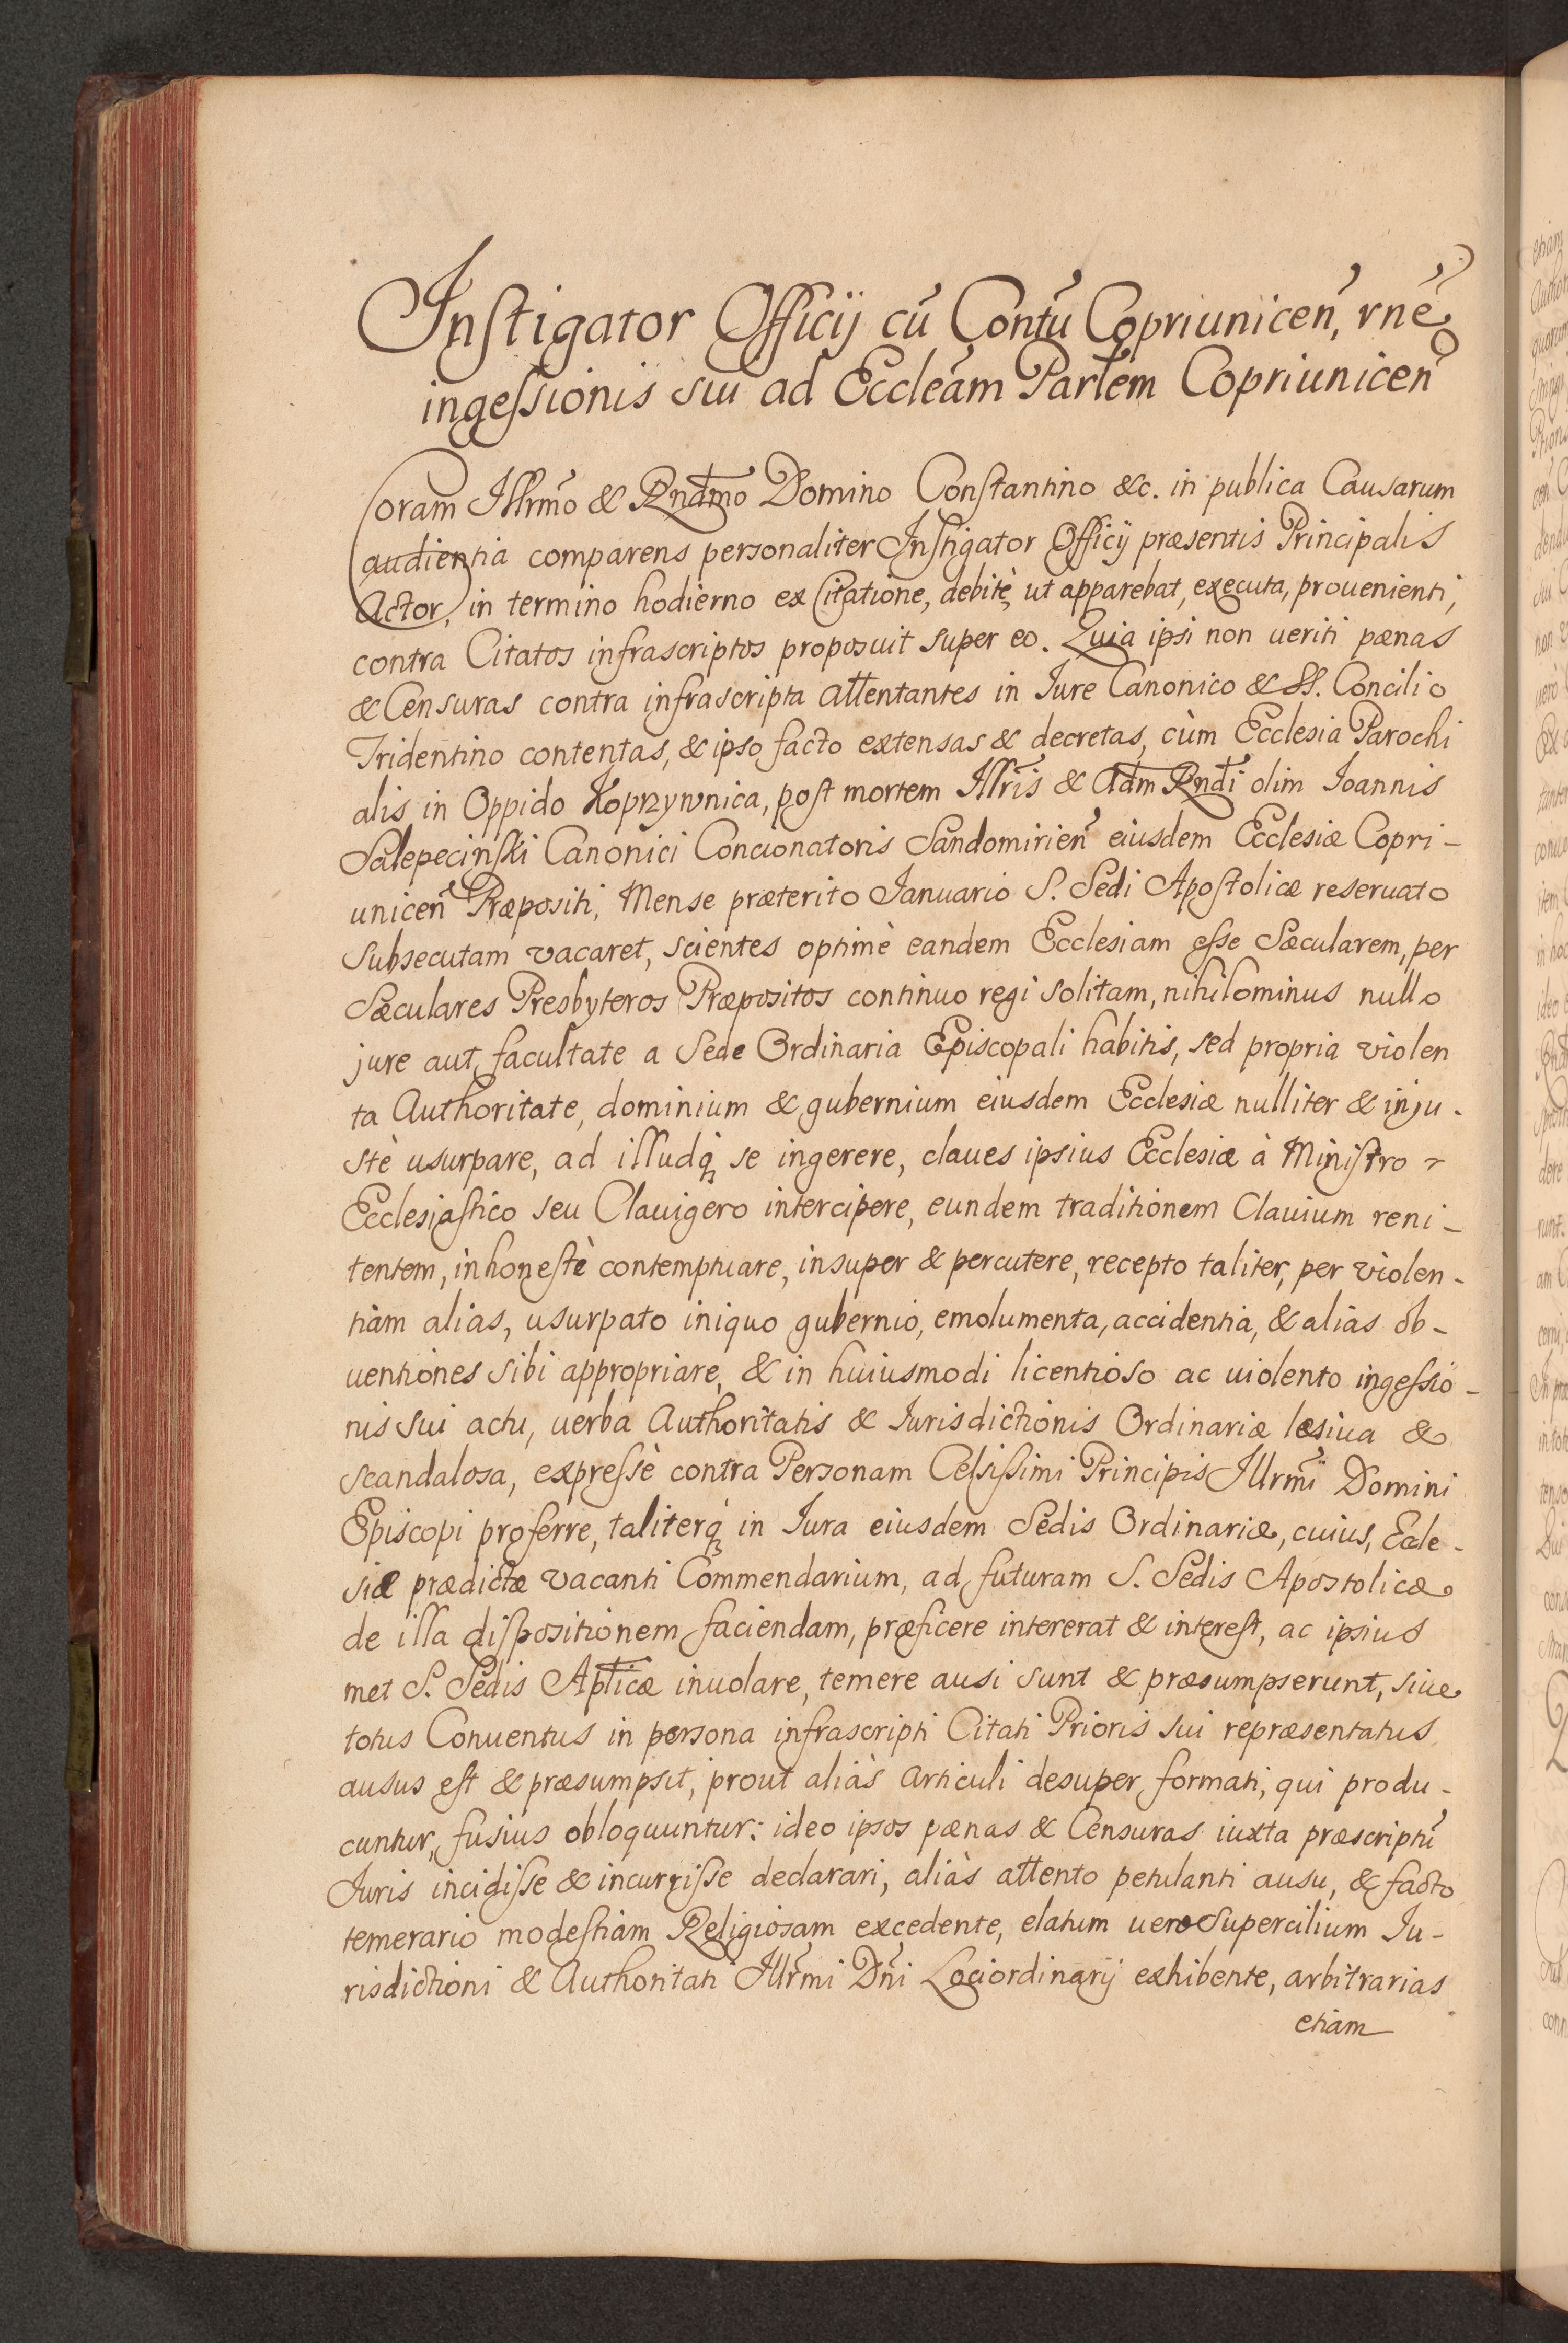 Instigator Officij cū Contū Copriunicen̄, rnē
ingessionis sui ad Eccleām Partem Copriunicen̄
Coram Illrm̄o & Rndmo Domino Constantino &c. in publica Causarum
audientia comparens personaliter Instigator Officij præsentis Principalis
Actor, in termino hodierno ex Citatione, debitè, ut apparebat, executa, prouenienti,
contra Citatos infrascriptos proposuit super eo. Quia ipsi non ueriti pœnas
& Censuras contra infrascripta attentantes in Jure Canonico & SS. Concilio
Tridentino contentas, & ipso facto extensas & decretas, cùm Ecclesia Parochi
alis in Oppido Koprzywnica, post mortem Illr̄is & Adm Rndi olim Ioannis
Salepecinski Canonici Concionatoris Sandomirien̄ eiusdem Ecclesiæ Copri-
unicen̄ Præpositi, Mense præterito Ianuario S. Sedi Apostolicæ reseruato
subsecutam vacaret, scientes optimè eandem Ecclesiam esse Sæcularem, per
Sæculares Presbyteros Præpositos continuo regi solitam, nihilominus nullo
jure aut facultate a Sede Ordinaria Episcopali habitis, sed propria violen
ta Authoritate, dominium & gubernium eiusdem Ecclesiæ nulliter & inju-
stè usurpare, ad illudq̨ se ingerere, claues ipsius Ecclesiæ à Ministro
Ecclesiastico seu Clauigero intercipere, eundem traditionem Clauium reni-
tentem, inhonestè contemptuare, insuper & percutere, recepto taliter, per violen-
tiam alias, usurpato iniquo gubernio, emolumenta, accidentia, & alias ob-
uentiones sibi appropriare, & in huiusmodi licentioso ac uiolento ingessio-
nis sui actu, uerba Authoritatis & Iurisdictionis Ordinariæ læsiua &
scandalosa, expressè contra Personam Celsissimi Principis Illrm̄i Domini
Episcopi proferre, taliterq̨ in Iura eiusdem Sedis Ordinariæ, cuius, Eccle-
siæ prædictæ vacanti Commendarium, ad futuram S. Sedis Apostolicæ
de illa dispositionem faciendam, præficere intererat & interest, ac ipsius
met S. Sedis Aplicæ inuolare, temere ausi sunt & præsumpserunt, siue
totus Conuentus in persona infrascripti Citati Prioris sui repræsentatus
ausus est & præsumpsit, prout aliàs articuli desuper formati, qui produ-
cuntur, fusius obloquuntur: ideo ipsos pœnas & Censuras iuxta præscriptū
Iuris incidisse & incurrisse declarari, aliàs attento petulanti ausu, & facto
temerario modestiam Religiosam excedente, elatum uero Supercilium Iu-
risdictioni & Authoritati Illrm̄i Dn̄i Lociordinarij exhibente, arbitrarias
etiam